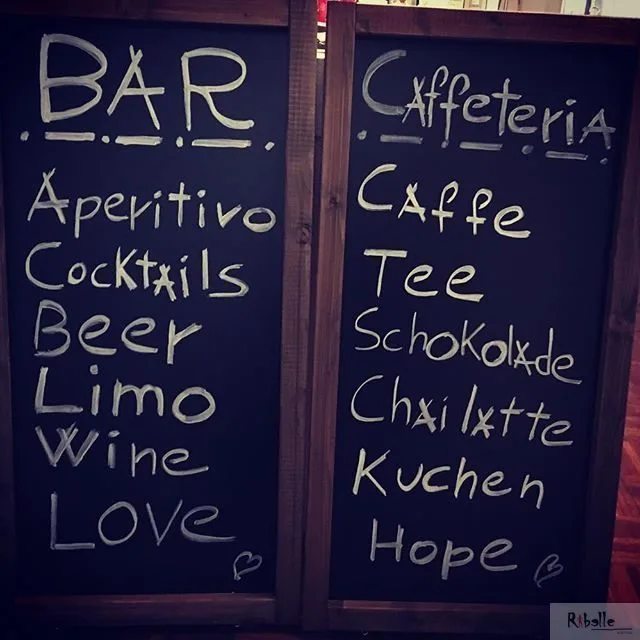 BAR
Aperitivo
Cocktails
Beer
Limo
Wine
Love
Caffeteria
Caffe
Tee
Schokolade
Chai latte
Kuchen
Hope